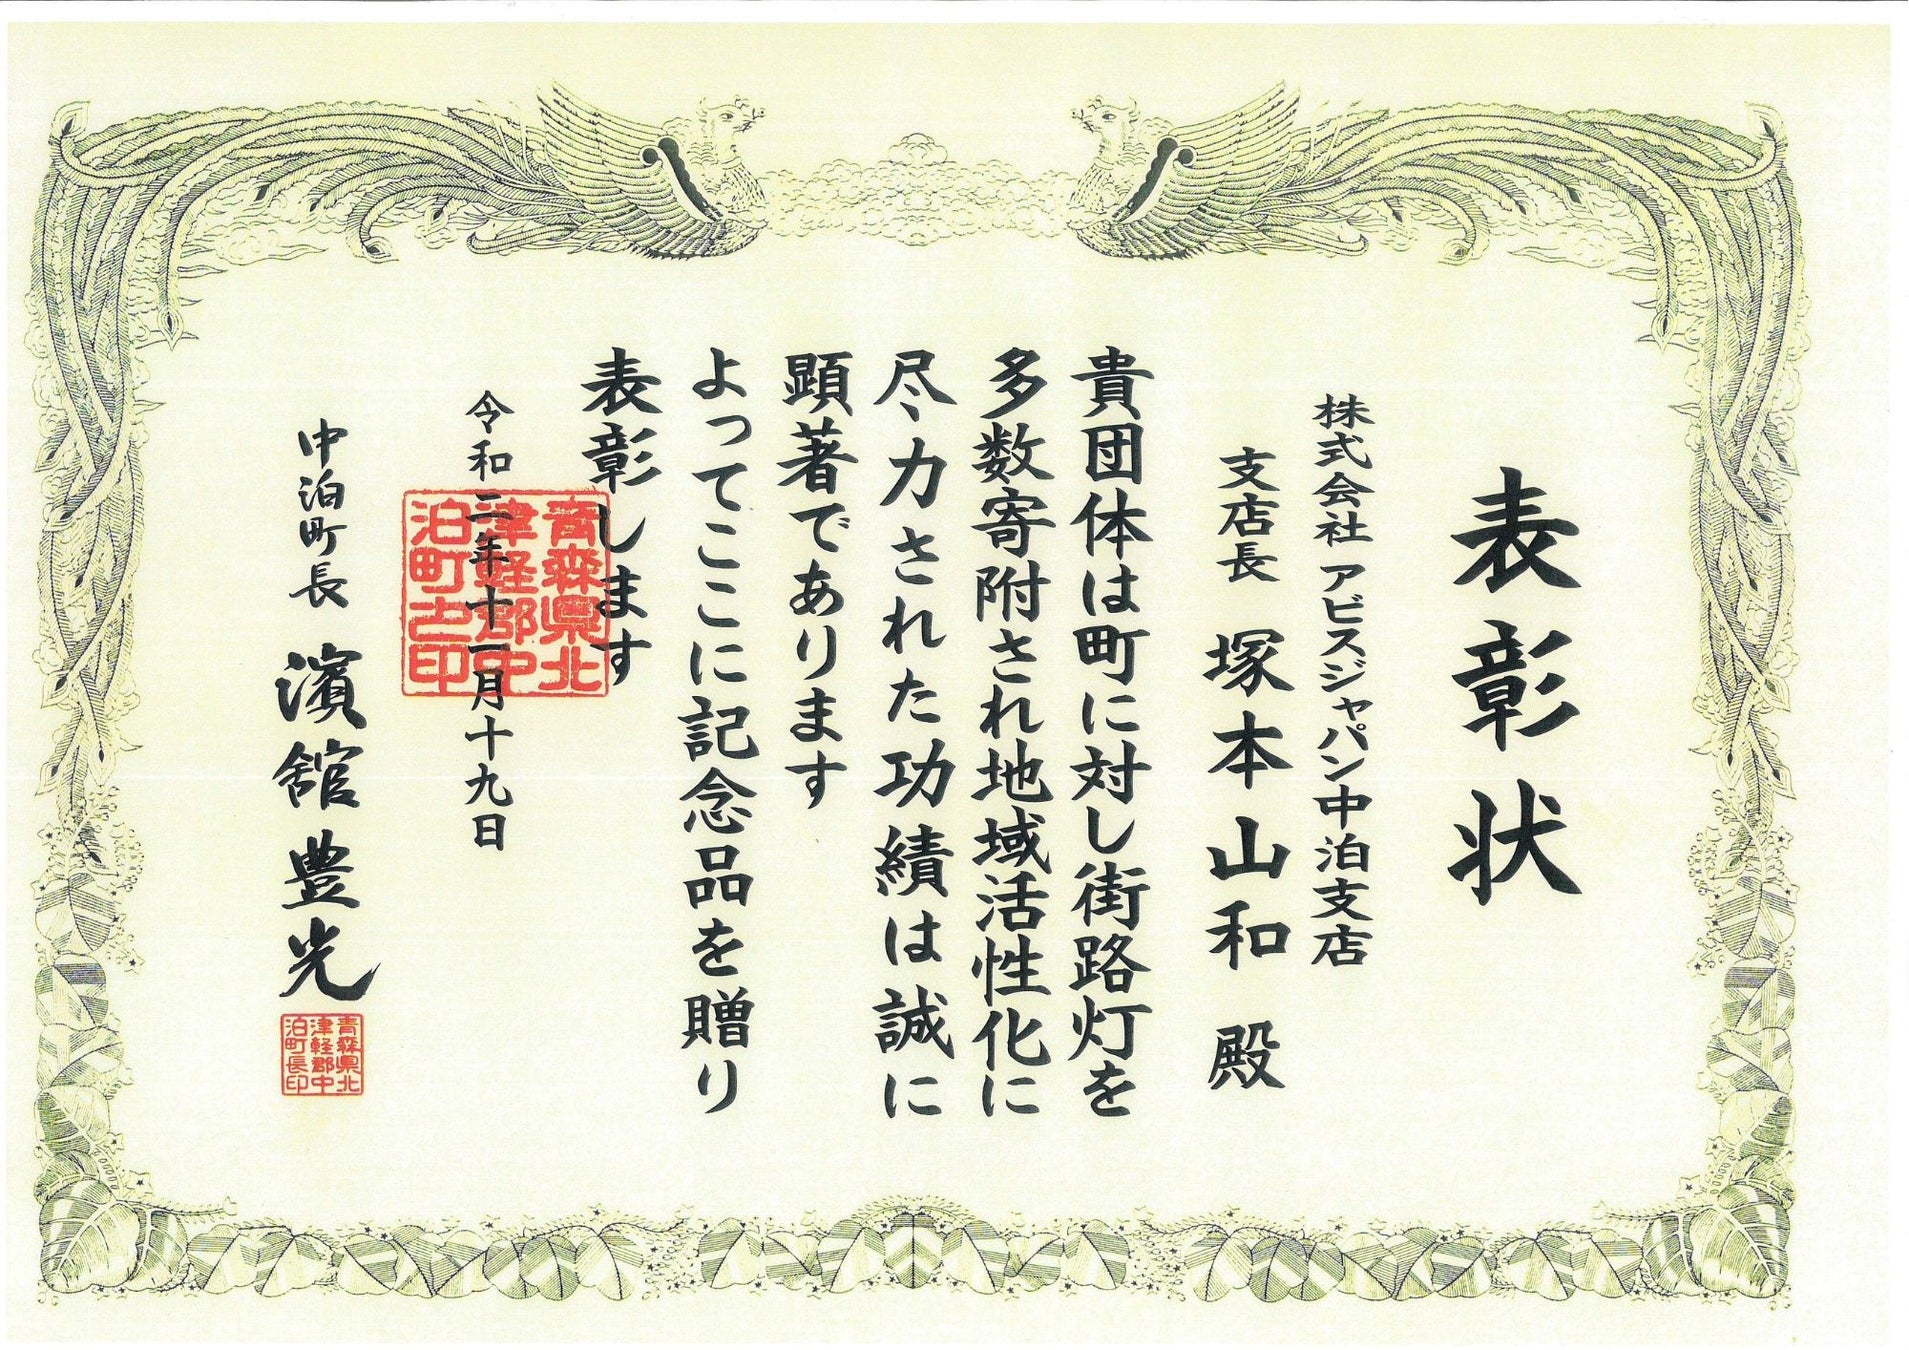 表彰状
株式会社 アビスジャパン中泊支店
支店長 塚本山和 殿
貴団体は町に対し街路灯を
多数寄附され地域活性化に
尽力された功績は誠に
顕著であります
よってここに記念品を贈り
表彰します
令和二年十一月十九日
青森県北
津軽郡中
泊町之印
中泊町長 濱舘豊光
青森県北
津軽郡中
泊町長印